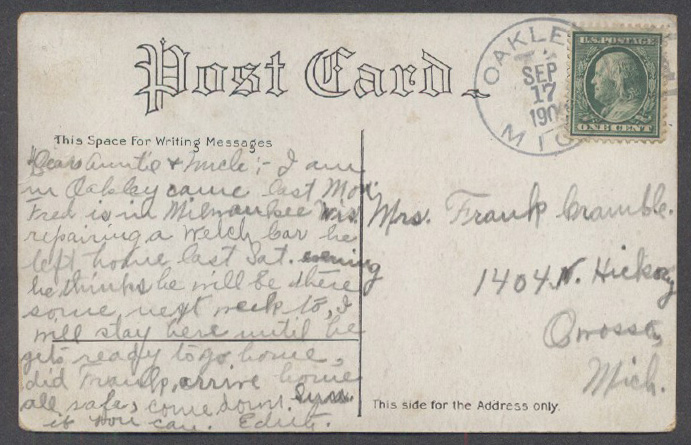 Post Card.
OAKLEY
SEP
17
190
MIC
U.S. POSTAGE
ONE CENT
This Space For Writing Messages
Dear Auntie & Uncle:- I am
in Oakley came last Mon
Fred is in Milwaukee Wis.
repairing a Welch Car he
left home last Sat. evening
he thinks he will be there
some next week to, I
will stay here until he
gets ready to go home,
did Frank arrive home
all safe, come down
if you can. Edith.
Mrs. Frank Cramble.
1404 N. Hickory
Owosso,
Mich.
This side for the Address only.